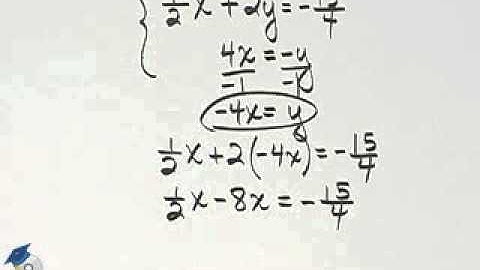 1/2 x + 2y = -15/4
4x = -y
-1 -1
-4x = y
1/2 x + 2(-4x) = -15/4
1/2 x - 8x = -15/4